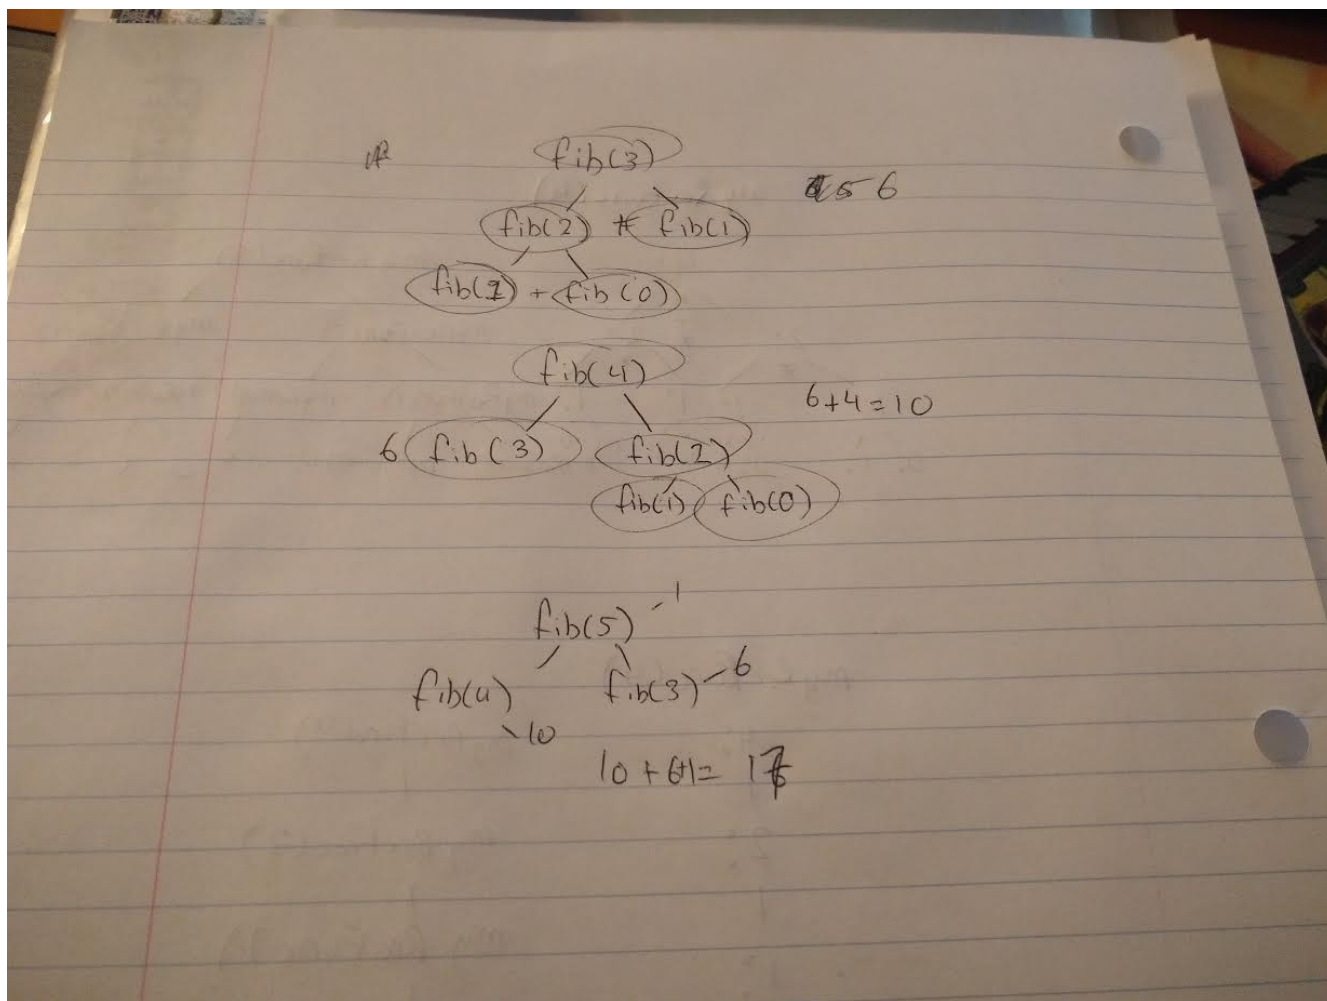 fib(3)
5 6
fib(2) + fib(1)
fib(1) + fib(0)
fib(4)
6+4=10
6 fib(3) fib(2)
fib(1) fib(0)
fib(5) - 1
fib(4) fib(3) - 6
- 10
10 + 6+1= 17